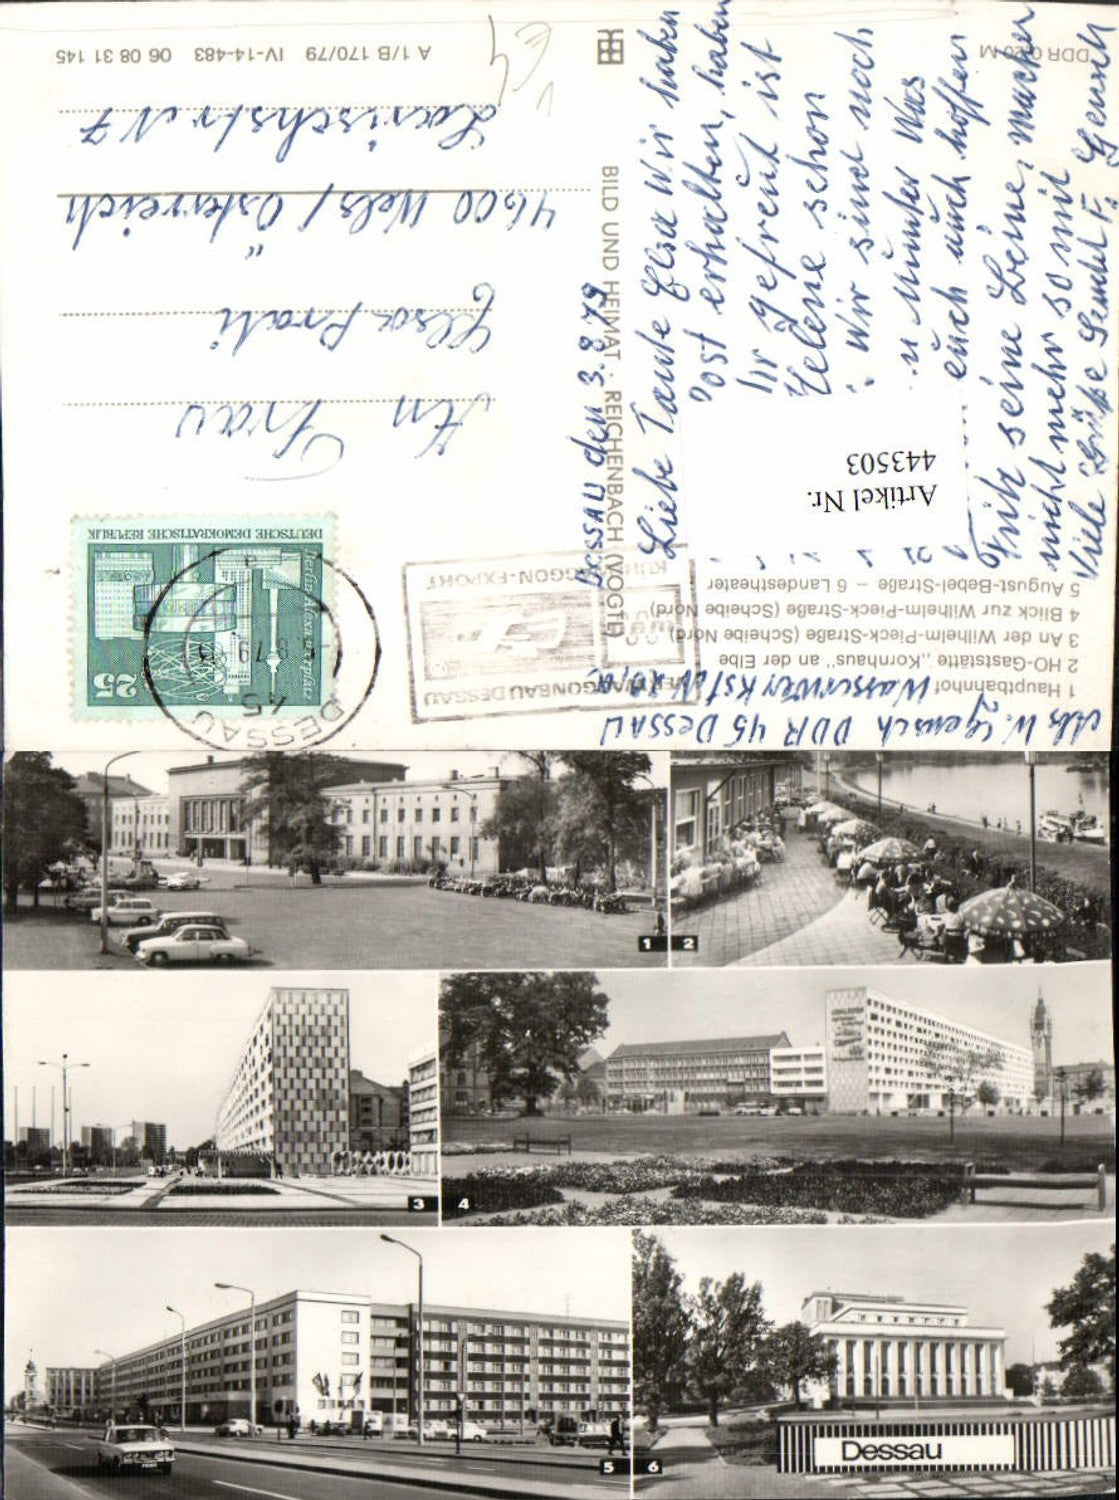 Abs W. Gensch DDR 45 DESSAU
Wasserwerkstr
1 Hauptbahnhof
2 HO-Gaststätte „Kornhaus" an der Elbe
3 An der Wilhelm-Pieck-Straße (Scheibe Nord)
4 Blick zur Wilhelm-Pieck-Straße (Scheibe Nord)
5 August-Bebel-Straße – 6 Landestheater
Artikel Nr.
443503
DESSAU den 3.8.79
Liebe Tante Elsa wir haben
Post erhalten, haben
gefreut ist
Helene schon
wir sind noch
u Munter was
euch auch hoffen
Fritz seine Beine, machen
nicht mehr so mit
Viele Grüße Gensch
DDR 0,20 M
BILD UND HEIMAT · REICHENBACH (VOGTL)
VEB WAGGONBAU DESSAU
KÜHLWAGGON-EXPORT
DESSAU
45
DEUTSCHE DEMOKRATISCHE REPUBLIK
Berlin, Alexanderplatz
25
An Frau
Elsa
4600 Wels / Österreich
N 7
A 1/B 170/79 IV-14-483 06 08 31 145
1
2
3
4
5
6
Dessau